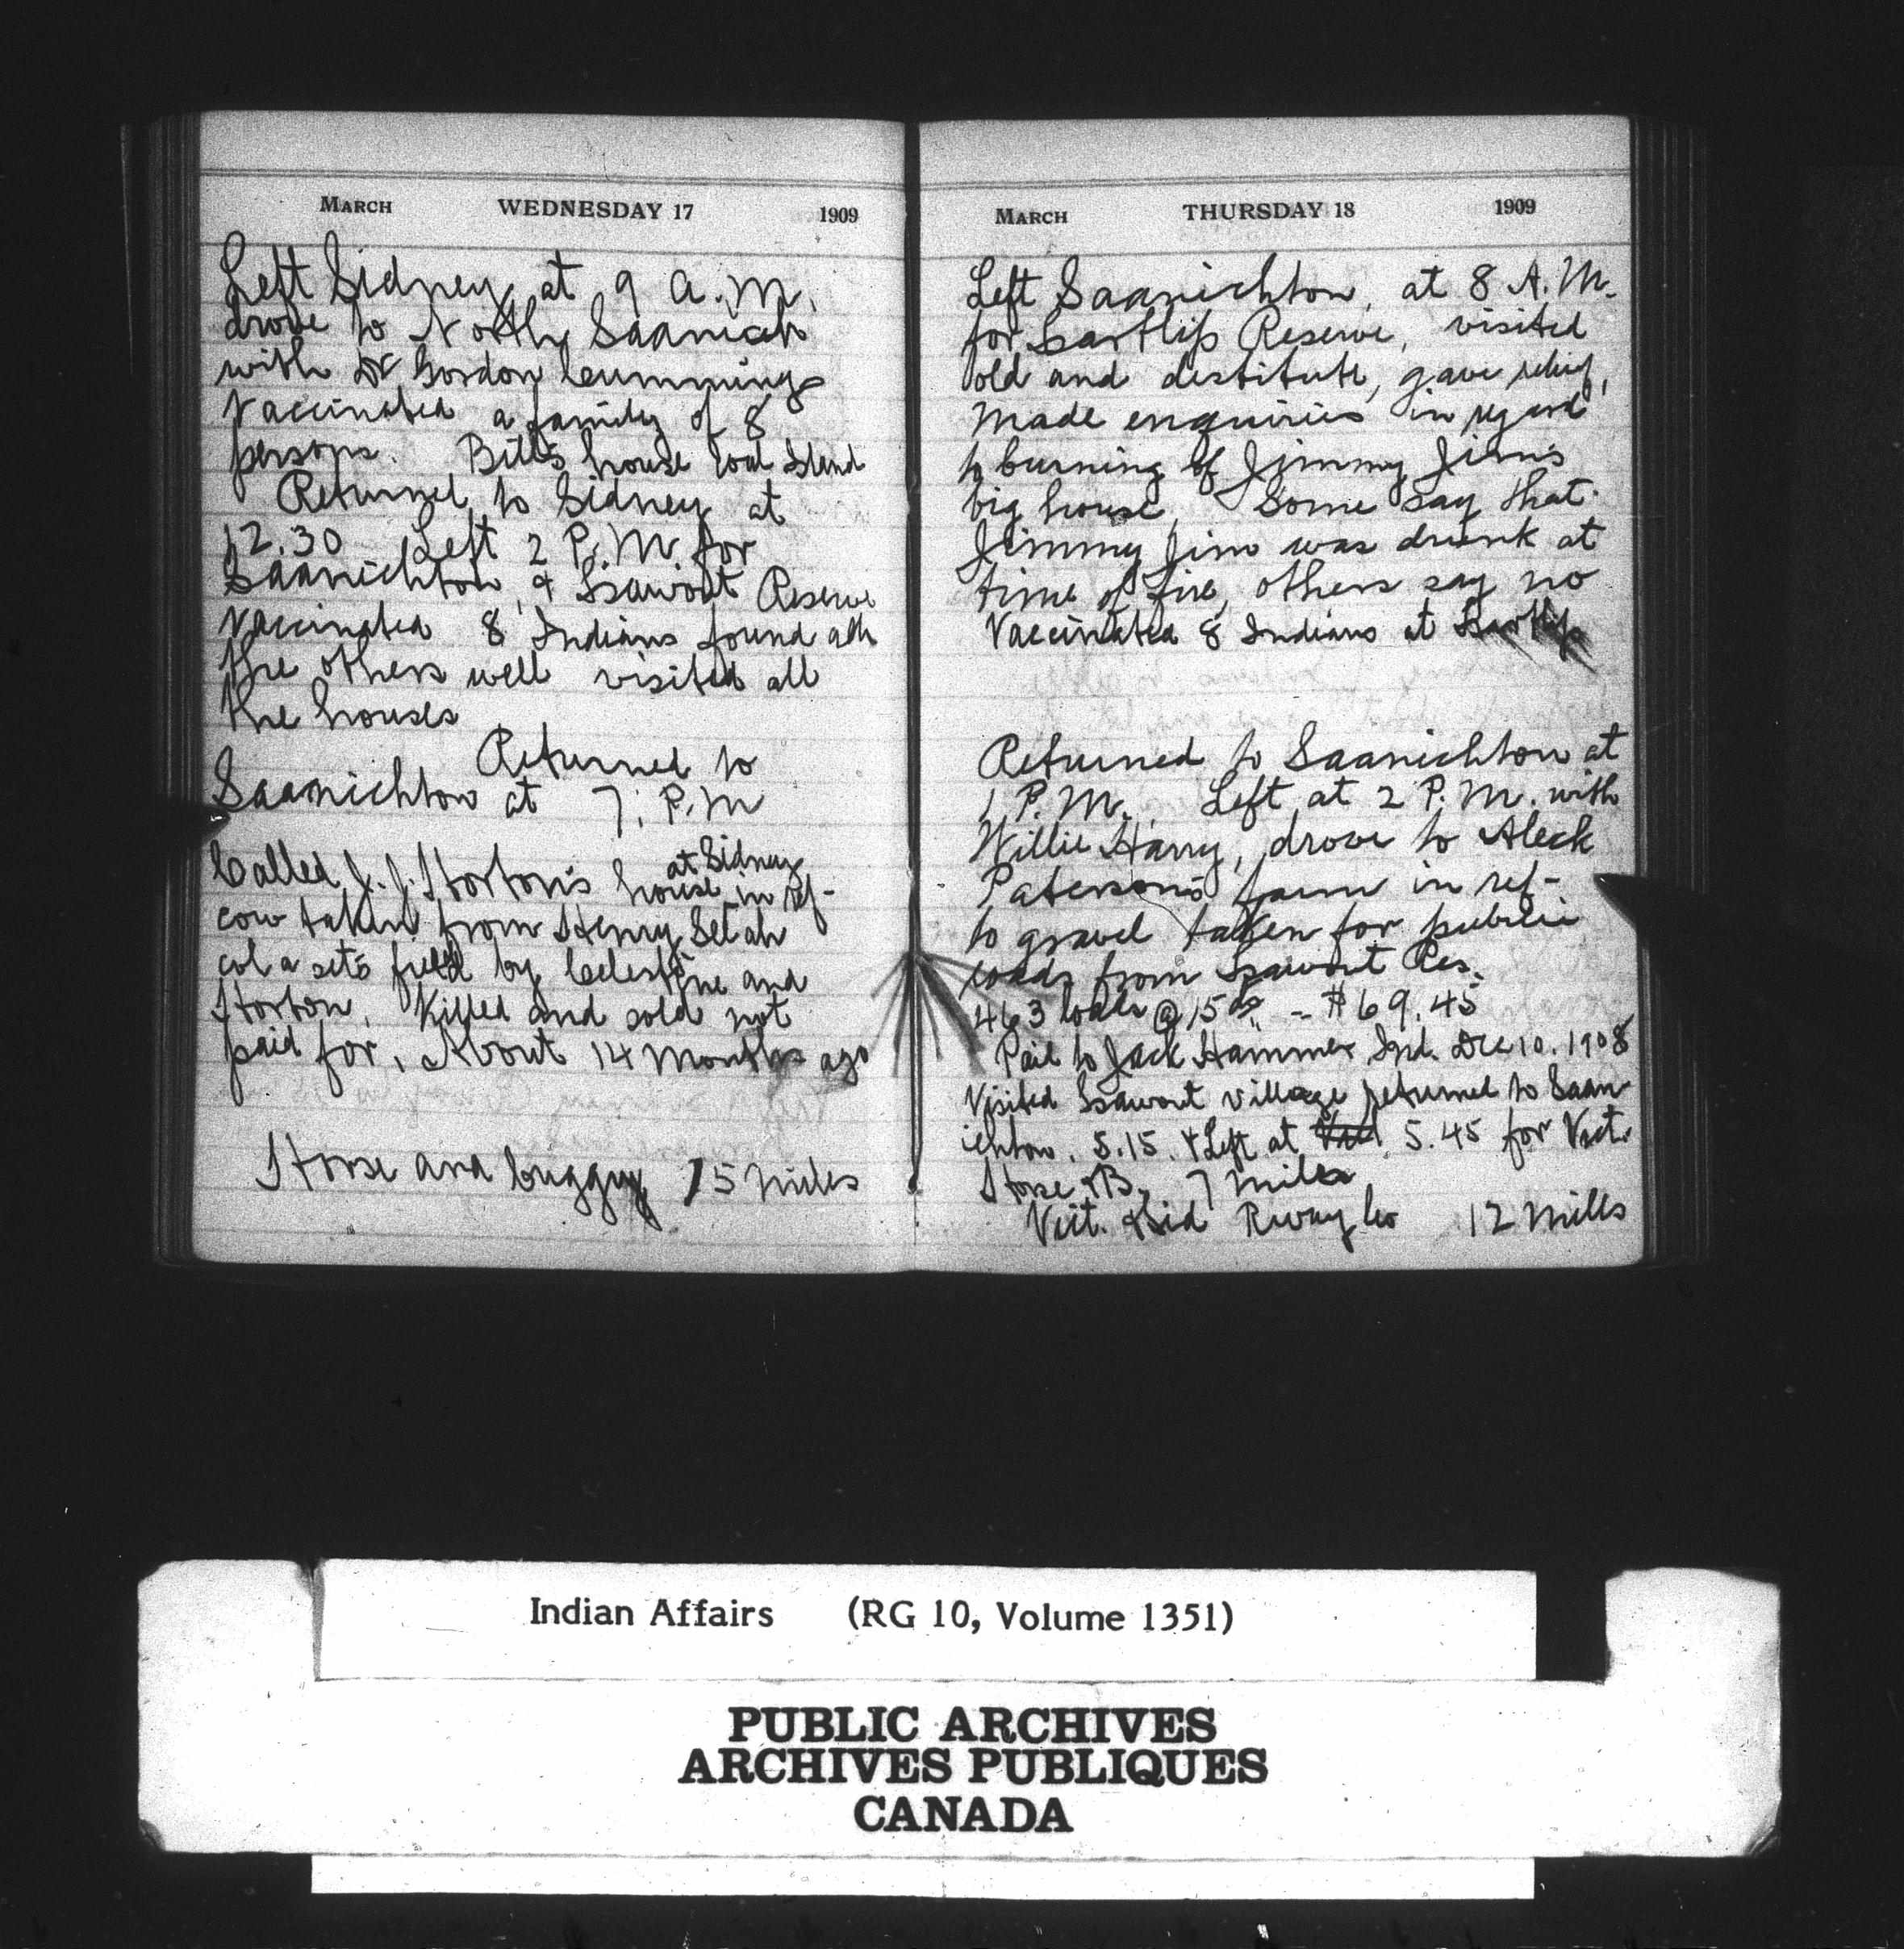 MARCH WEDNESDAY 17 1909
Left Sidney at 9 A.M.
drove to North Saanich
with Dr Gordon Cummings
Vaccinated a family of 8
persons. Bill's house Coal Island
Returned to Sidney at
12.30 Left 2 P.M. for
Saanichton, & Tsawout Reserve
Vaccinated 8 Indians found all
the others well visited all
the houses
Returned to
Saanichton at 7. P.M
at Sidney
Called J. J. Horton's house in ref-
cow taken from Henry Setah
col a set's field by Celestine and
Horton, Killed and sold not
paid for, About 14 Months ago
Horse and buggy 15 miles
MARCH THURSDAY 18 1909
Left Saanichton, at 8 A.M.
for Tsartlip Reserve, visited
old and destitute, gave relief,
Made enquiries in regard
to burning of Jimmy Jim's
big house, Some say that
Jimmy Jim was drunk at
time of fire, others say no
Vaccinated 8 Indians at Tsartlip
Returned to Saanichton at
1 P.M. Left at 2 P.M. with
Willie Harry, drove to Aleck
Paterson's farm in ref-
to gravel taken for public
roads from Tsawout Res.
463 loads @ 15 - $69.45
Paid to Jack Hammer Ind. Dec 10. 1908
Visited Tsawout village returned to Saan-
ichton. 5.15. & Left at 5.45 for Vict.
Horse & B. 7 Miles
Vict. & Sid Rway Co 12 Miles
Indian Affairs (RG 10, Volume 1351)
PUBLIC ARCHIVES
ARCHIVES PUBLIQUES
CANADA